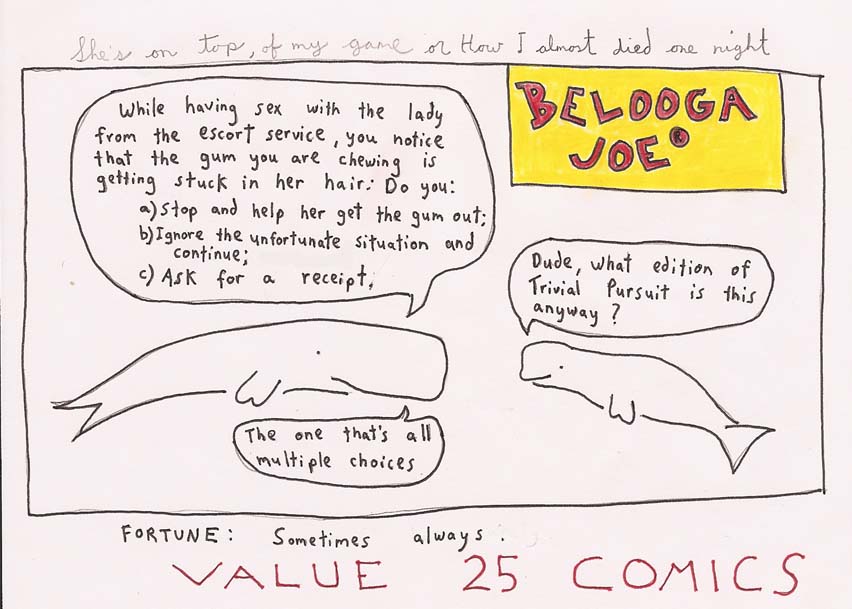 She's on top, of my game or How I almost died one night
BELOOGA
JOE®
While having sex with the lady
from the escort service, you notice
that the gum you are chewing is
getting stuck in her hair. Do you:
a) Stop and help her get the gum out;
b) Ignore the unfortunate situation and
continue;
c) Ask for a receipt.
Dude, what edition of
Trivial Pursuit is this
anyway?
The one that's all
multiple choices
FORTUNE: Sometimes always.
VALUE 25 COMICS